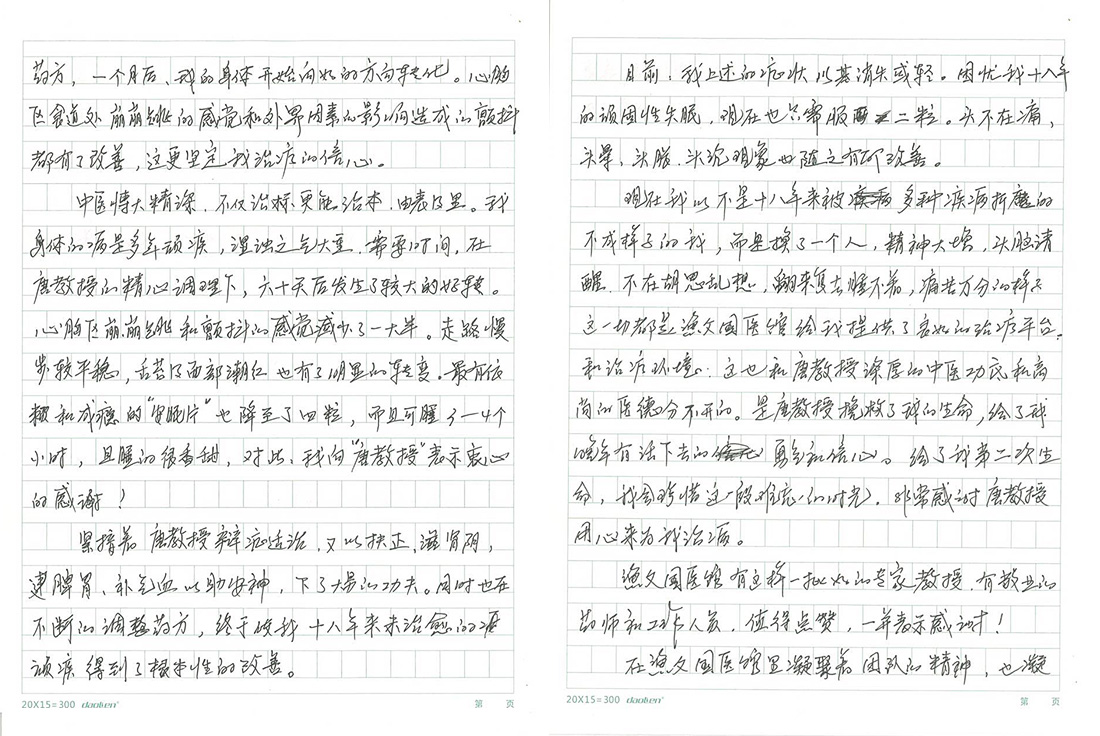 药方，一个月后、我的身体开始向好的方向转化。心肠
区食道处崩崩跳的感觉和外界因素的影响造成的颤抖
都有了改善，这更坚定我治病的信心。
中医博大精深、不仅治标、更能治本、由表及里。我
身体的病是多年顽疾，湿浊之气太重、需要时间，在
唐教授的精心调理下，六十天后发生了较大的好转。
心肠区崩崩跳和颤抖的感觉减少了一大半。走路慢
步较平稳，舌苔and面部潮红也有了明显的转变。最有依
赖和成瘾的“安眠片”也降至了四粒，而且可睡3—4个
小时，且睡的很香甜，对此、我向“唐教授”表示衷心
的感谢！
紧接着唐教授辩症适治、又以扶正、滋肾阴，
健脾胃、补气血以助安神，下了大量的功夫。同时也在
不断的调整药方，终于使我十八年来未治愈的
顽疾得到了根本性的改善。
20X15=300 daolien
第 页
目前、我上述的症状以其消失或轻。困忧我十八年
的顽固性失眠，现在也只需服二粒。头不在痛，
头晕、头胀、头沉现象也随之有所改善。
现在我以不是十八年来被多种疾病折磨的
不成样子的我，而是换了一个人，精神大增，头脑清
醒、不在胡思乱想，翻来复去睡不着，痛苦万分的样子
这一切都是渔父国医馆给我提供了良好的治病平台、
和治病环境、这也和唐教授深厚的中医功底和高
尚的医德分不开的。是唐教授挽救了我的生命，给了我
晚年有活下去的勇气和信心。给了我第二次生
命，我会珍惜这一段难忘的时光、非常感谢唐教授
用心来为我治病。
渔父国医馆有这样一批好的专家教授、有敬业的
药师和工作人员、值得点赞，一并表示感谢！
在渔父国医馆里凝聚着团队的精神，也凝
20X15=300 daolien
第 页